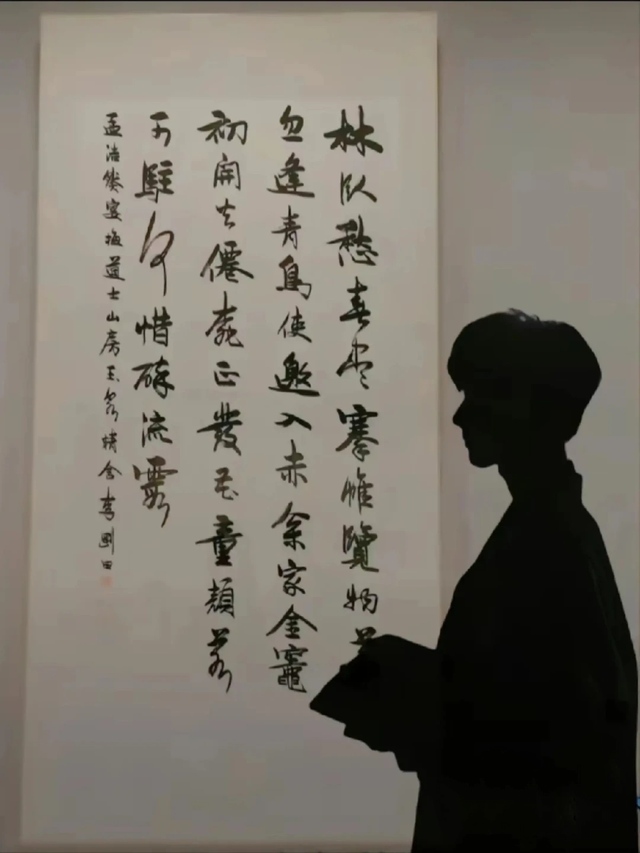 林臥愁春尽搴帷覽物
忽逢青鳥使邀入赤松家金竈
初開火僊桃正發花童顏若
可駐何惜醉流霞
孟浩然宴梅道士山房玉泉精舍李剛田